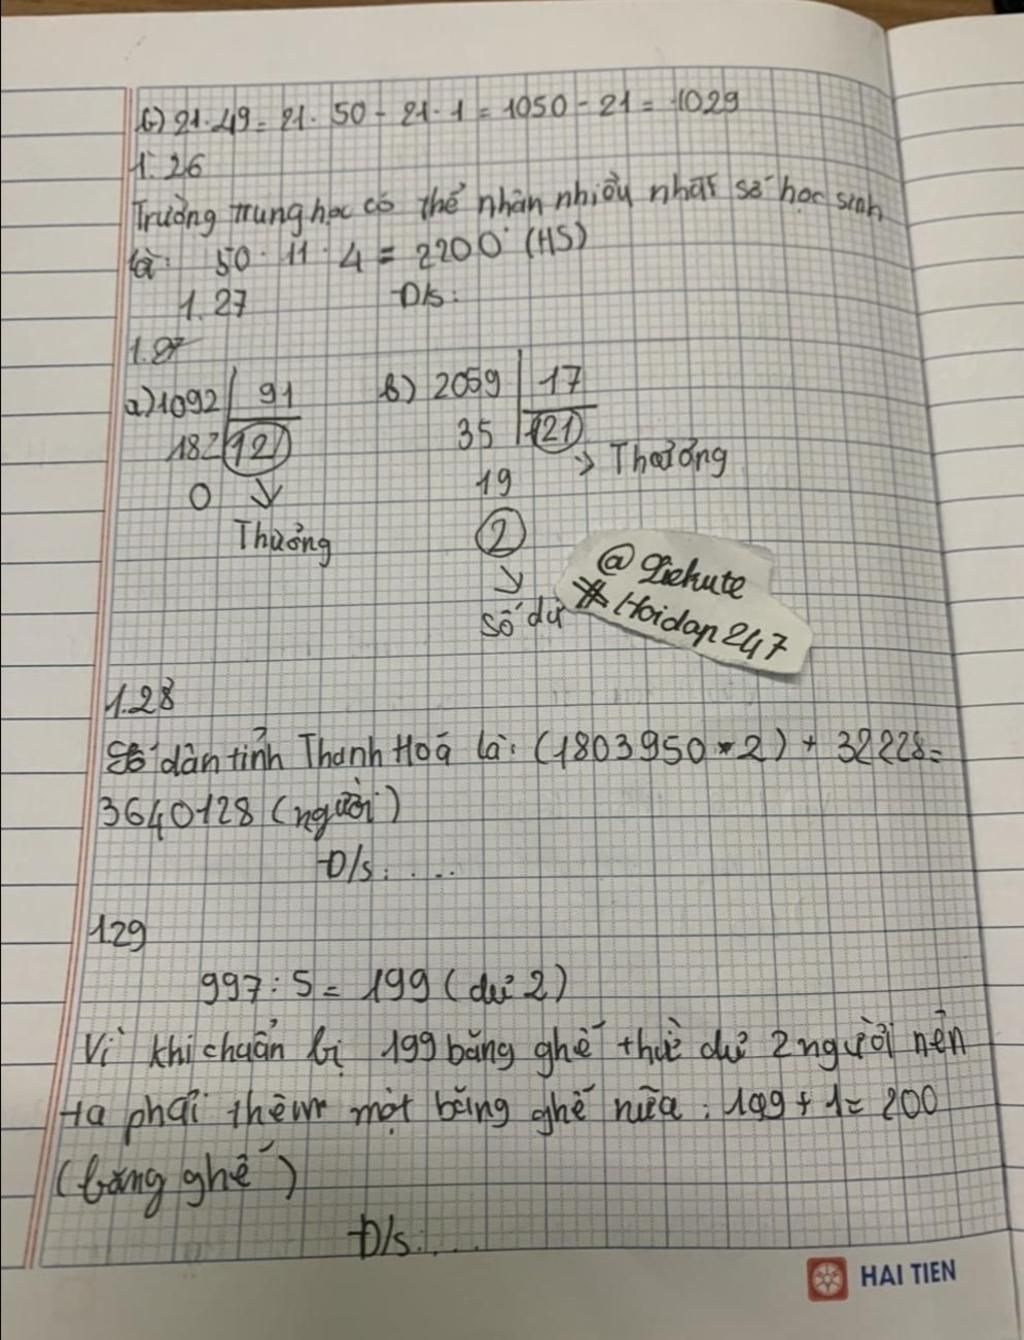 b) 21.49 = 21.50 - 21.1 = 1050 - 21 = 1029
1.26
Trường trung học có thể nhận nhiều nhất số học sinh
là: 50.11.4 = 2200 (HS)
1.27 Đ/s:
1.27
a) 1092 | 91 b) 2059 | 17
182 | 12 35 | 121
-> Thương
0 19
Thương 2
số dư
@Liekute
#Hoidap247
1.28
Số dân tỉnh Thanh Hoá là: (1803950 . 2) + 32228 =
3640128 (người)
Đ/s: ....
1.29
997 : 5 = 199 (dư 2)
Vì khi chuẩn bị 199 băng ghế thì dư 2 người nên
ta phải thêm một băng ghế nữa: 199 + 1 = 200
(băng ghế)
Đ/s: ....
HAI TIEN